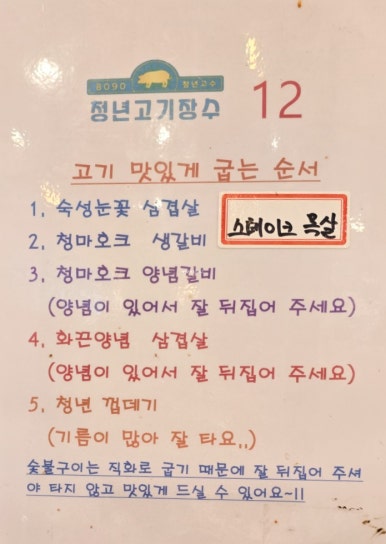 8090 청년고수
청년고기장수 12
고기 맛있게 굽는 순서
1. 숙성눈꽃 삼겹살
스테이크 목살
2. 청마호크 생갈비
3. 청마호크 양념갈비
(양념이 있어서 잘 뒤집어 주세요)
4. 화끈양념 삼겹살
(양념이 있어서 잘 뒤집어 주세요)
5. 청년 껍데기
(기름이 많아 잘 타요..)
숯불구이는 직화로 굽기 때문에 잘 뒤집어 주셔
야 타지 않고 맛있게 드실 수 있어요~!!